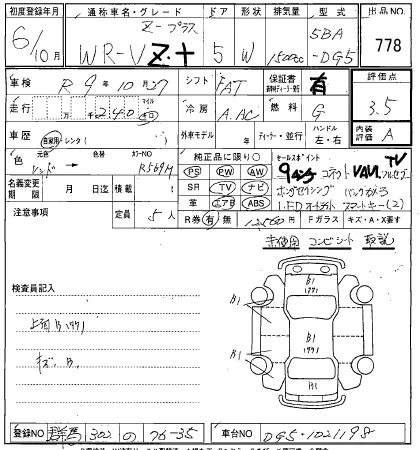 初度登録年月 通称車名・グレード ドア 形状 排気量 型式 出品NO.
Z-プラス
6/10月 WR-V Z+ 5 W 1500cc 5BA-DG5 778
車検 R9年10月27 シフト FAT 保証書 有 評価点
走行 万 千 240 マイル キロ 冷房 A.AC 燃料 G 3.5
車歴 自家用・レンタ( ) 外車モデル 年 ディーラー・並行 ハンドル 左・右 内装 A
色 元色 レッド → カラーNO R569M 純正品に限り○ セールスポイント
PS PW AW
SR TV ナビ
革 エアB ABS
9インチ コネクト NAVI フルセグ TV
ホンダセンシング バックカメラ
LED オートライト スマートキー(2)
名義変更期限 月 日迄 積載 t
注意事項 定員 5人
R券 有 無 12,560円 Fガラス キズ・A・X要す
未使用 コンビシート 取説
検査員記入
上廻B1771
キズ、B.
B1
1771
B1
B1
1771
B1
B1
登録NO 群馬 302 の 76-35 車台NO DG5-1021198